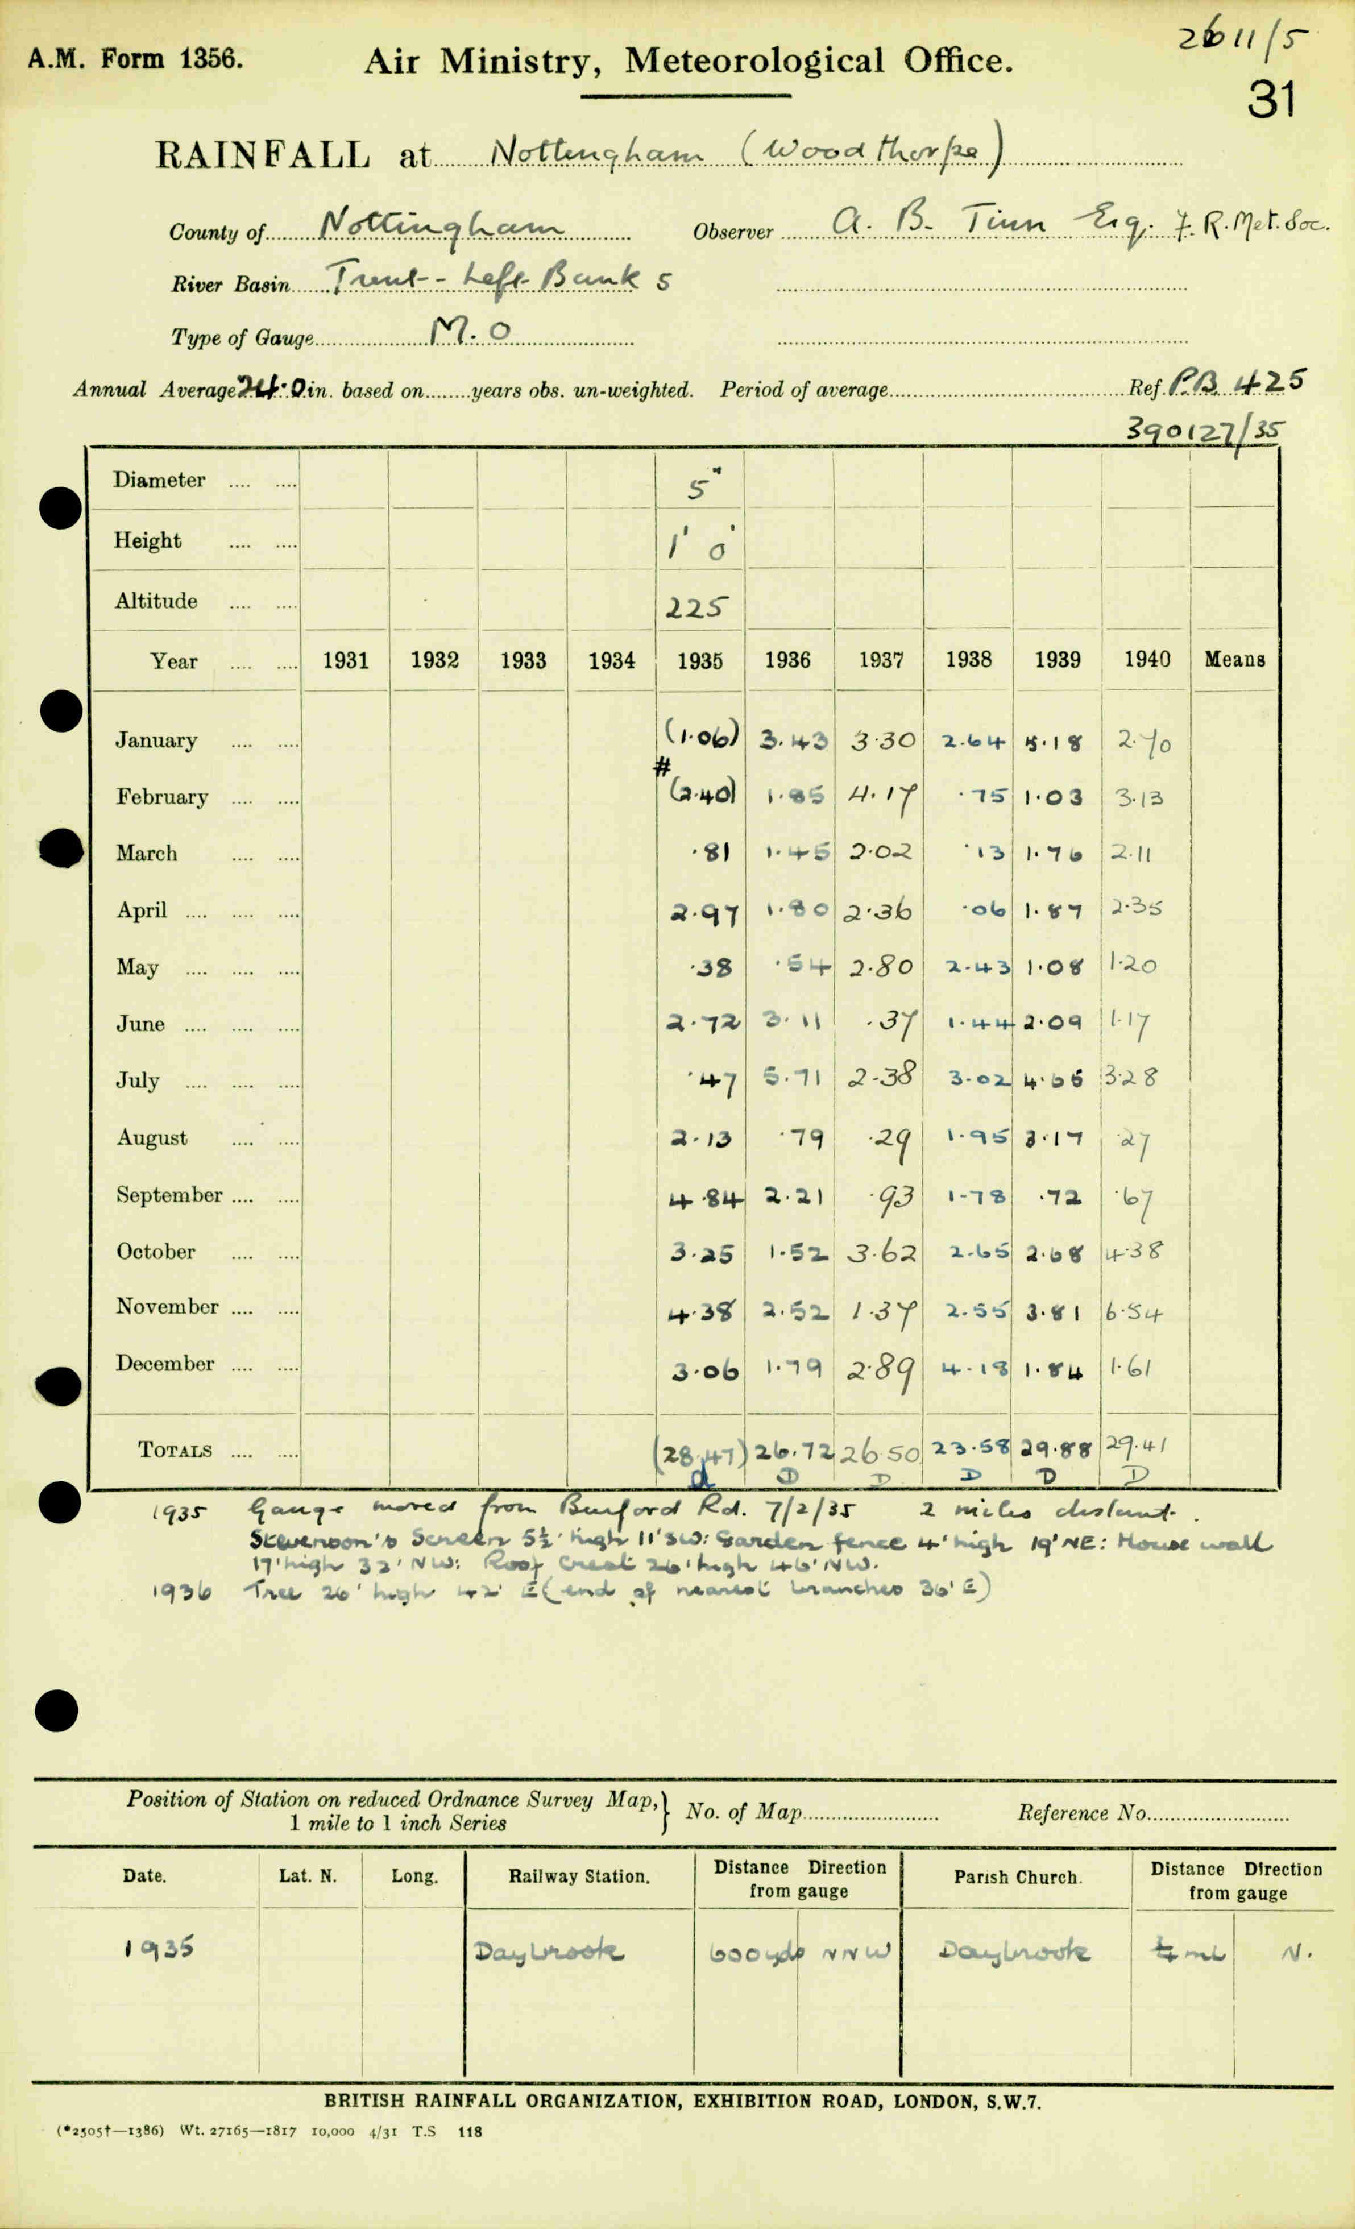 2611/5
A.M. Form 1356. Air Ministry, Meteorological Office.
31
RAINFALL at Nottingham (Woodthorpe)
County of Nottingham Observer A. B. Tinn Esq. F. R. Met. Soc.
River Basin Trent - Left Bank 5
Type of Gauge M. O
Annual Average 24.0 in. based on years obs. un-weighted. Period of average Ref. P.B. 425
390127/35
Diameter 5"
Height 1' 0"
Altitude 225
Year 1931 1932 1933 1934 1935 1936 1937 1938 1939 1940 Means
January (1.06) 3.43 3.30 2.64 5.18 2.70
#
February (2.40) 1.85 4.17 .75 1.03 3.13
March .81 1.45 2.02 .13 1.76 2.11
April 2.97 1.80 2.36 .06 1.87 2.35
May .38 .54 2.80 2.43 1.08 1.20
June 2.72 3.11 .37 1.44 2.09 1.17
July .47 5.71 2.38 3.02 4.65 3.28
August 2.13 .79 .29 1.95 3.17 .27
September 4.84 2.21 .93 1.78 .72 .67
October 3.25 1.52 3.62 2.65 2.68 4.38
November 4.38 2.52 1.37 2.55 3.81 6.54
December 3.06 1.79 2.89 4.18 1.84 1.61
TOTALS (28.47) 26.72 26.50 23.58 29.88 29.41
d D D D D D
1935 Gauge moved from Burford Rd. 7/2/35 2 miles distant.
Stevenson's Screen 5½' high 11' SW: Garden fence 4' high 19' NE: House wall
17' high 32' NW: Roof Crest 26' high 46' NW.
1936 Tree 26' high 42' E (end of nearest branches 36' E)
Position of Station on reduced Ordnance Survey Map, } No. of Map Reference No.
1 mile to 1 inch Series
Date. Lat. N. Long. Railway Station. Distance Direction from gauge Parish Church. Distance Direction from gauge
1935 Daybrook 600 yds NNW Daybrook ¾ ml N.
BRITISH RAINFALL ORGANIZATION, EXHIBITION ROAD, LONDON, S.W.7.
(*2505†—1386) Wt. 27165—1817 10,000 4/31 T.S 118